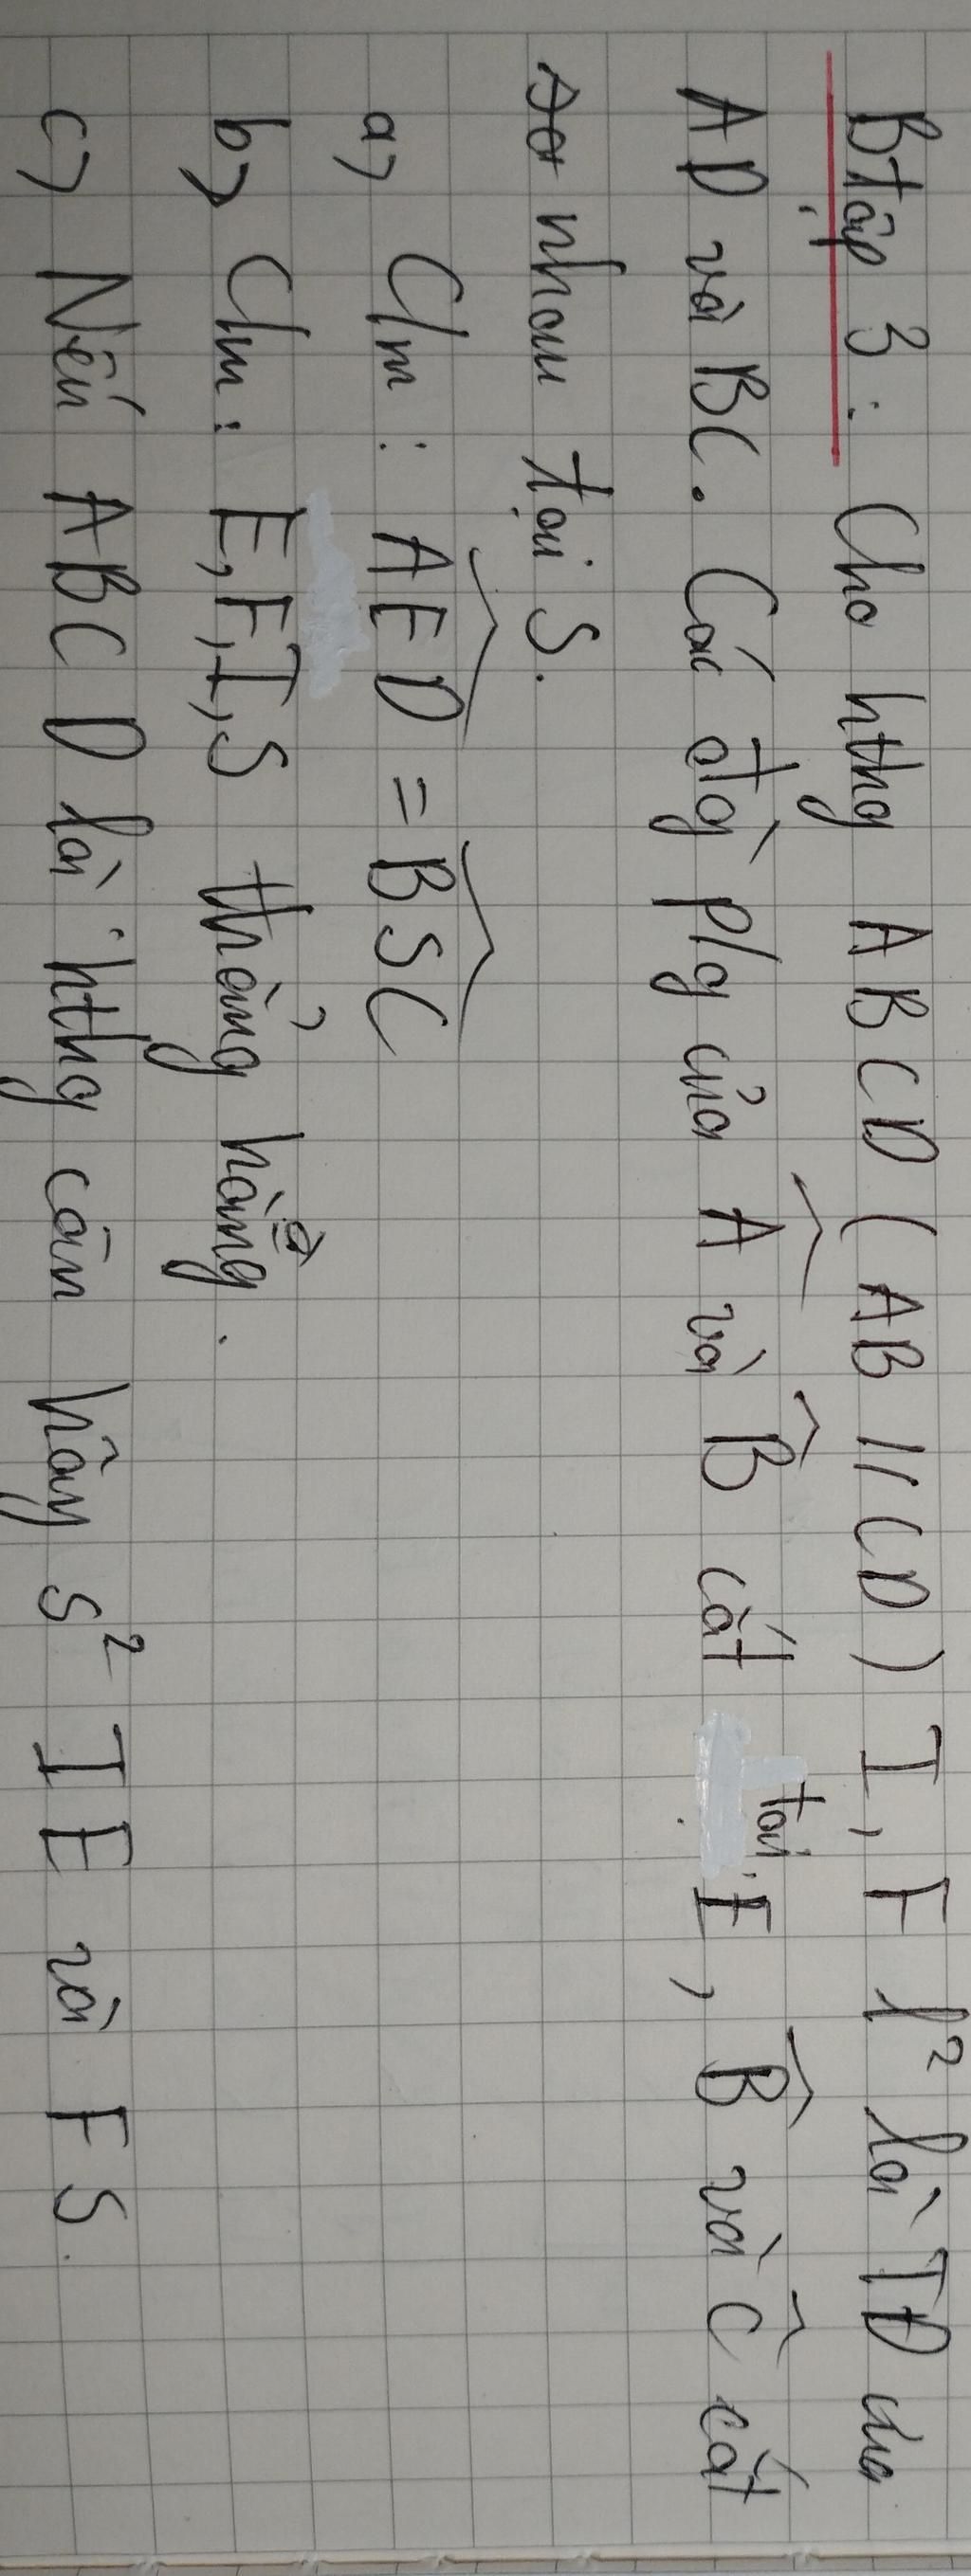 Btập 3 : Cho hthg ABCD ( AB // CD ) I, F l² là TĐ của
AD và BC. Các đg p/g của Â và B̂ cắt tại E, B̂ và Ĉ cắt
nhau tại S.
a, C/m : AED = BSC
b, C/m : E, F, I, S thẳng hàng.
c, Nếu ABCD là hthg cân hãy s² IE và FS.